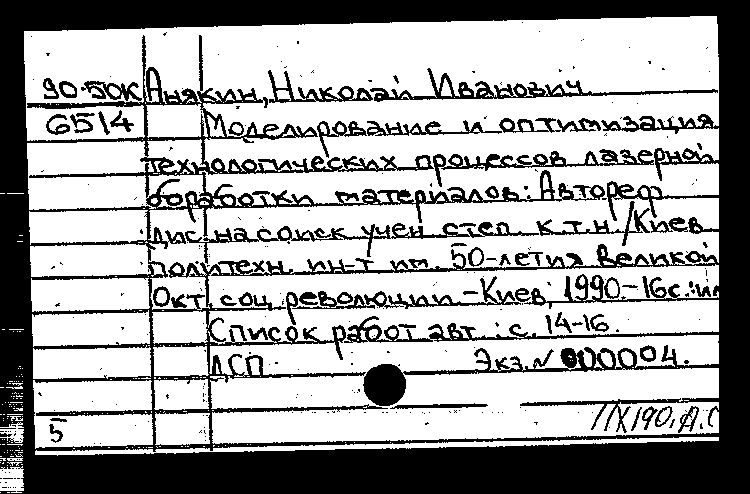 90-50К Анякин, Николай Иванович
6514 Моделирование и оптимизация
технологических процессов лазерной
обработки материалов: Автореф
дис. на соиск учен степ к.т.н. / Киев
политехн. ин-т им. 50-летия Великой
Окт. соц. революции - Киев, 1990.-16с.:ил
Список работ авт.: с. 14-16.
ДСП Экз. N 000004.
5